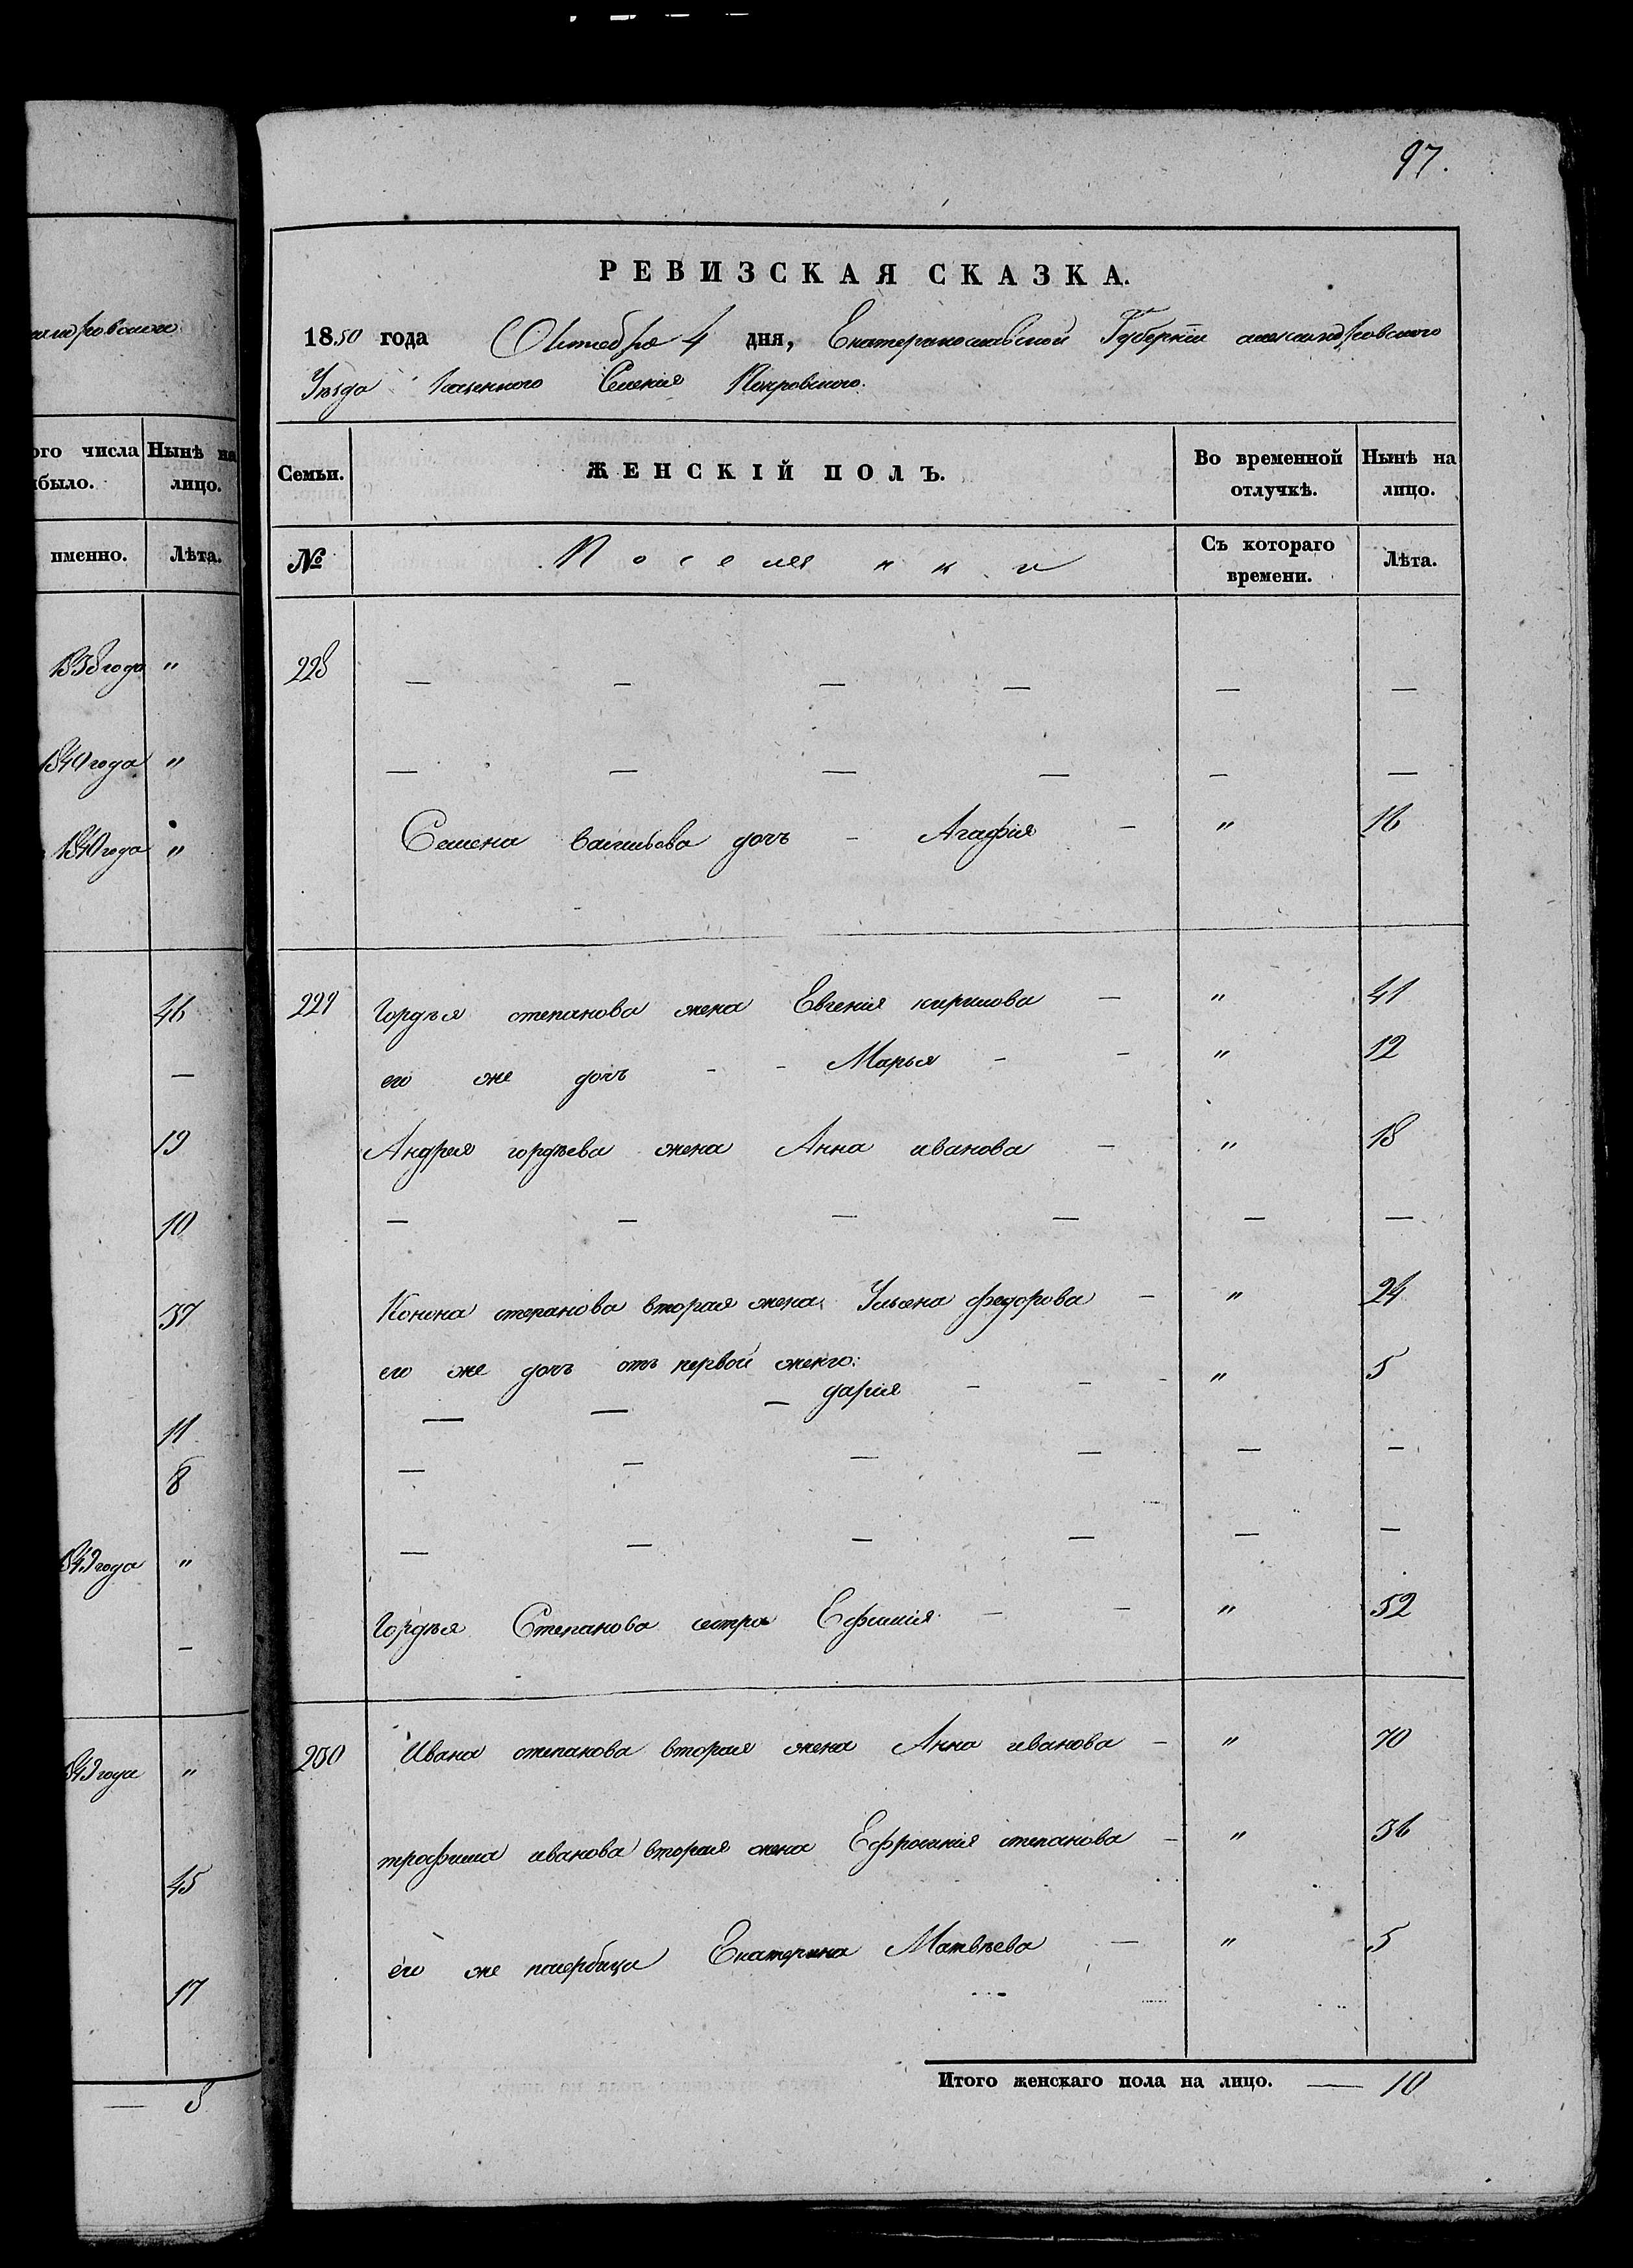 97.
РЕВИЗСКАЯ СКАЗКА.
1850 года Октября 4 дня, Екатеринославской Губерніи александровского
Уѣзда казенного Селенія Покровского.
Семьи. ЖЕНСКІЙ ПОЛЪ. Во временной отлучкѣ. Нынѣ на лицо.
№ Поселянки Съ котораго времени. Лѣта.
228 — — — — — —
— — — — — —
Семена васильева дочь - Агафія - " 16
229 Гордѣя степанова жена Евгенія кирилова - " 41
его же дочь - - Марья - - " 12
Андрея гордѣева жена Анна иванова - " 18
— — — — — —
Конона степанова вторая жена Ульяна федорова - " 24
его же дочь отъ первой жены:
— — — дарія - - - " 5
— — — — — —
— — — — — —
Гордѣя Степанова сестра Ефимія - - " 52
230 Ивана степанова вторая жена Анна иванова - " 70
трофима иванова вторая жена Ефросинія степанова - " 36
его же падчерица Екатерина Матвѣева - " 5
Итого женскаго пола на лицо. — 10
ого числа
было.
Нынѣ на
лицо.
именно. Лѣта.
1838 года "
1840 года "
1840 года "
46
—
19
10
37
11
8
года "
-
года "
45
17
— 8